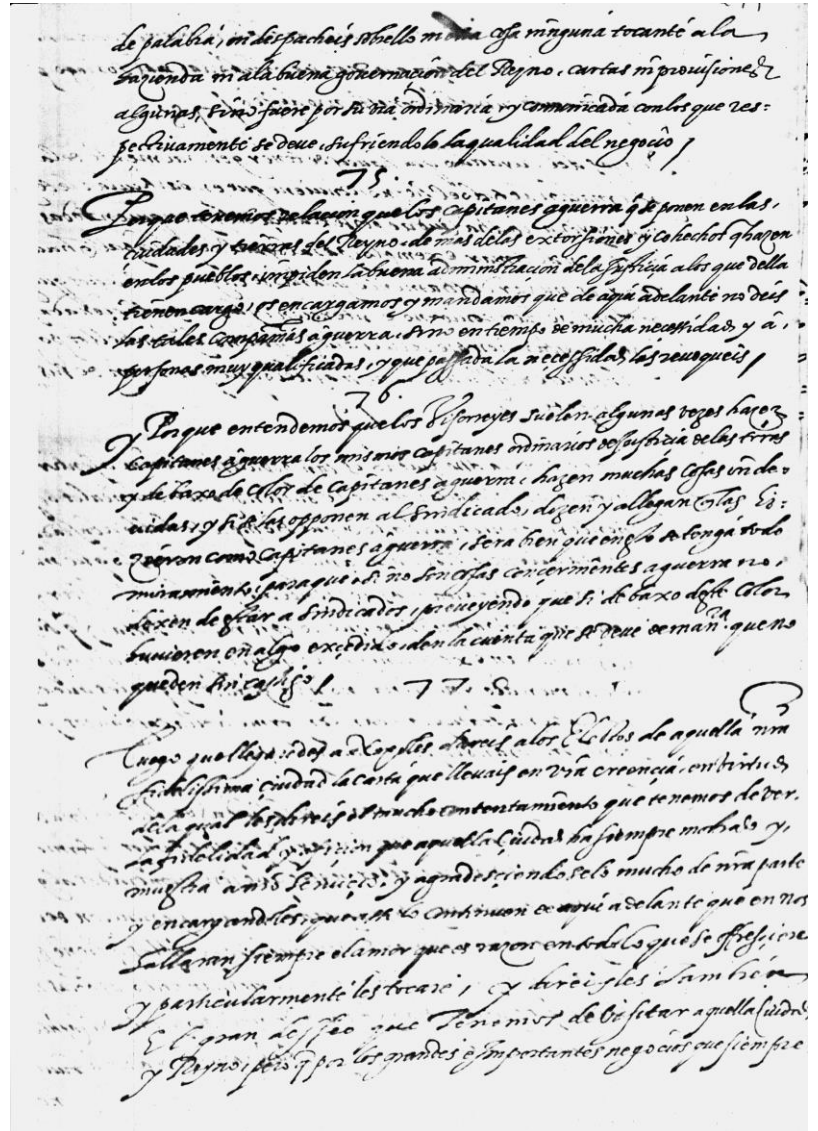 de palabra, ni despacheis sobrello ni otra cosa ninguna tocante a la
hazienda ni a la buena governacion del Reyno, cartas ni provisiones
algunas, sino fuere por su via ordinaria y comunicada con los que res=
pectivamente se deve, sufriendolo la qualidad del negocio /
75.
Porque tenemos relacion que los capitanes aguerra q̃ se ponen en las,
ciudades y tierras del Reyno, de mas de las extorsiones y cohechos q̃ hazen
en los pueblos, impiden la buena administracion de la justicia a los que della
tienen cargo, os encargamos y mandamos que de aqui adelante no deis
las tales Compañias aguerra, sino en tiempo de mucha necessidad y a,
personas muy qualificadas, y que passada la necessidad las revoqueis /
76.
y Porque entendemos que los Visoreyes suelen algunas vezes hazer
Capitanes aguerra los mismos capitanes ordinarios de justicia de las trr̃as
y debaxo de color de Capitanes aguerra, hazen muchas cosas inde=
vidas, y si se les opponen al sindicado, dizen y allegan q̃ las hi=
zieron como Capitanes aguerra, sera bien que en esto se tenga todo
miramiento, para que si no son cosas concernientes a guerra no,
dexen de estar a sindicados, proveyendo que si debaxo deste color
huvieren en algo excedido, den la cuenta que se deve de manr̃a que no
queden sin castigo /
77.
Luego que llegaredes a Napoles dareis a los Electos de aquella nr̃a
fidelissima ciudad la carta que llevais en vr̃a creencia, en virtud
de la qual les direis el mucho contentamiento que tenemos de ver,
la fidelidad y aficion que aquella Ciudad ha siempre mostrado y,
muestra a nr̃o servicio, y agradesciendoselo mucho de nr̃a parte
y encargandoles, que lo continuen de aqui adelante que en nos
hallaran siempre el amor que es razon en todo lo que se offresciere
y particularmente les tocare, y direisles tambien
El gran desseo que Tenemos de visitar aquella Ciudad
y Reyno, pero q̃ por los grandes e importantes negocios que siempre